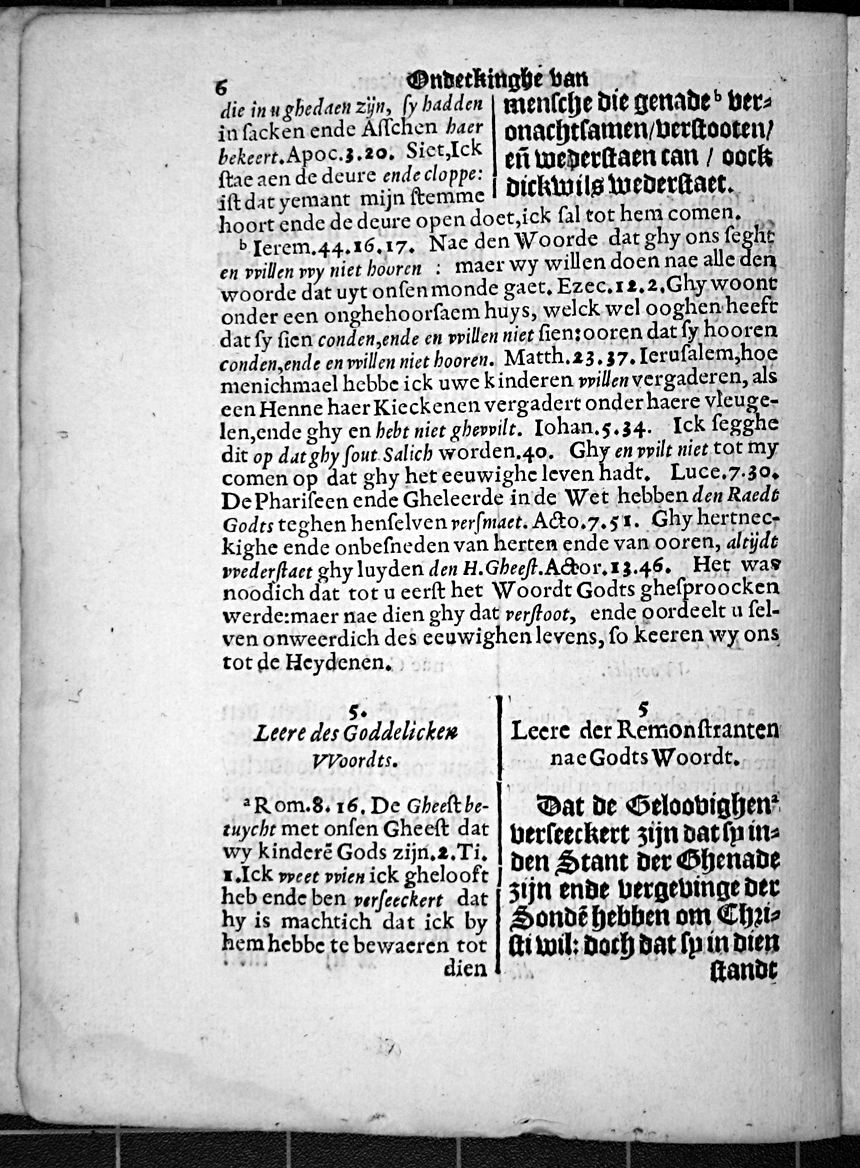 6
Ondeckinghe van
die in u ghedaen zijn, sy hadden
in sacken ende Asschen haer
bekeert. Apoc.3.20. Siet, Ick
stae aen de deure ende cloppe:
ist dat yemant mijn stemme
mensche die genade ᵇ ver-
onachtsamen/verstooten/
eñ wederstaen can / oock
dickwils wederstaet.
hoort ende de deure open doet, ick sal tot hem comen.
ᵇ Ierem.44.16.17. Nae den Woorde dat ghy ons seght
en willen wy niet hooren : maer wy willen doen nae alle den
woorde dat uyt onsen monde gaet. Ezec.12.2. Ghy woont
onder een onghehoorsaem huys, welck wel ooghen heeft
dat sy sien conden, ende en willen niet sien: ooren dat sy hooren
conden, ende en willen niet hooren. Matth.23.37. Ierusalem, hoe
menichmael hebbe ick uwe kinderen willen vergaderen, als
een Henne haer Kieckenen vergadert onder haere vleuge-
len, ende ghy en hebt niet ghewilt. Iohan.5.34. Ick segghe
dit op dat ghy sout Salich worden.40. Ghy en wilt niet tot my
comen op dat ghy het eeuwighe leven hadt. Luce.7.30.
De Phariseen ende Gheleerde in de Wet hebben den Raedt
Godts teghen henselven versmaet. Acto.7.51. Ghy hertnec-
kighe ende onbesneden van herten ende van ooren, altijdt
wederstaet ghy luyden den H. Gheest. Actor.13.46. Het was
noodich dat tot u eerst het Woordt Godts ghesproocken
werde: maer nae dien ghy dat verstoot, ende oordeelt u sel-
ven onweerdich des eeuwighen levens, so keeren wy ons
tot de Heydenen.
5.
Leere des Goddelicken
VVoordts.
ᵃ Rom.8.16. De Gheest be-
tuycht met onsen Gheest dat
wy kinderẽ Gods zijn.2.Ti.
1. Ick weet wien ick ghelooft
heb ende ben verseeckert dat
hy is machtich dat ick by
hem hebbe te bewaeren tot
dien
5
Leere der Remonstranten
nae Godts Woordt.
Dat de Geloovighen ᵃ
verseeckert zijn dat sy in-
den Stant der Ghenade
zijn ende vergevinge der
Sondẽ hebben om Chri-
sti wil: doch dat sy in dien
standt